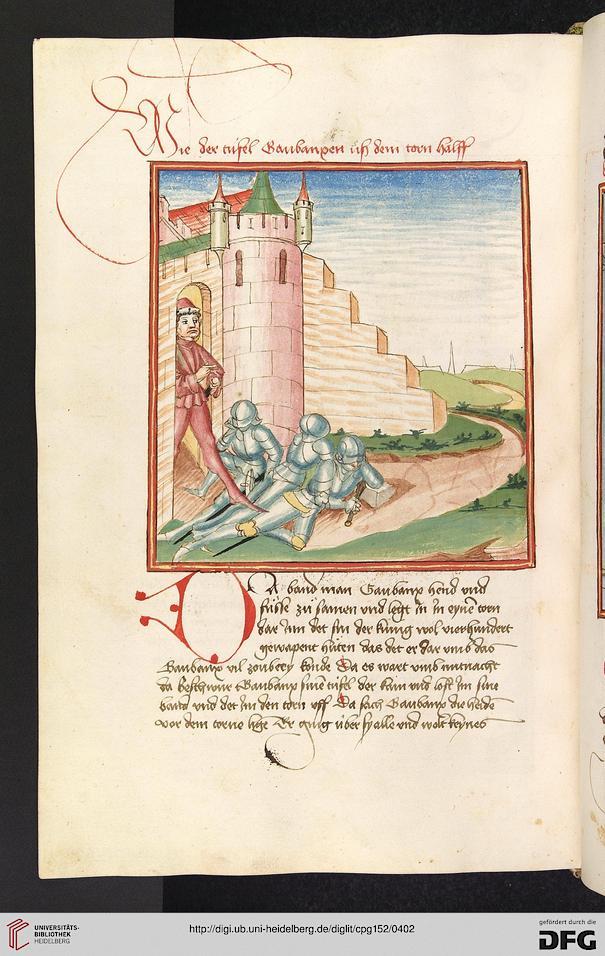 Wie der tufel Gaubanxen uß dem torn halff
Da band man Gaubanx hend vnd
fusse zu samen vnd leigt jn jn eyne torn
dar jnn det sin der kunig wol vierhundert
gewapent huten das det er dar vmb das
Gaubanx vil zoubery konde Da es wart vmb mitnacht
da beschwur Gaubanx sine tufel der kam vnd lost jm sine
band vnd det jm den torn vff Da sach Gaubanx die heiden
vor dem torne lige Er ging uber sy alle vnd wolt keynes
UNIVERSITÄTS-
BIBLIOTHEK
HEIDELBERG
http://digi.ub.uni-heidelberg.de/diglit/cpg152/0402
gefördert durch die
DFG